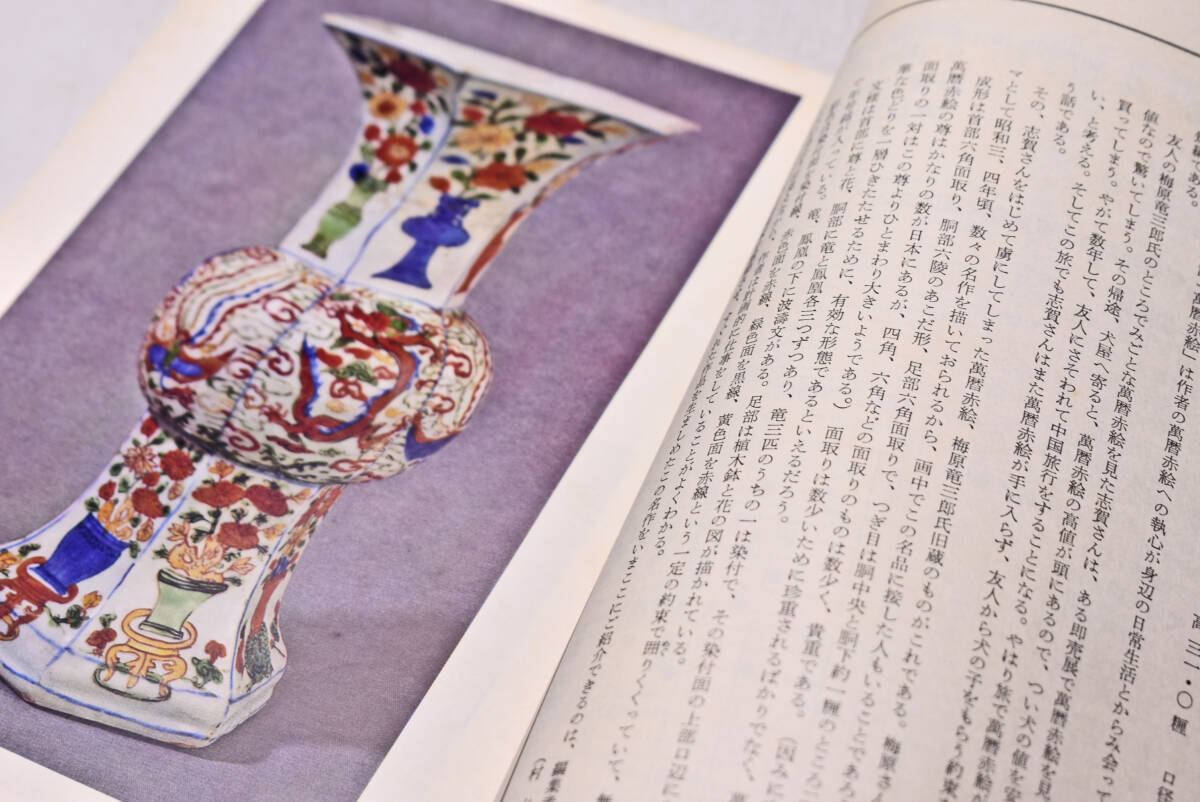 高 三一・〇糎 口径
「萬暦赤絵」は作者の萬暦赤絵への執心が身辺の日常生活とからみ会って
である。
友人の梅原竜三郎氏のところでみごとな萬暦赤絵を見た志賀さんは、ある即売展で萬暦赤絵を見
値なので驚いてしまう。その帰途、犬屋へ寄ると、萬暦赤絵の高値が頭にあるので、つい犬の値を安
買ってしまう。やがて数年して、友人にさそわれて中国旅行をすることになる。やはり旅で萬暦赤絵が
い、と考える。そしてこの旅でも志賀さんはまた萬暦赤絵が手に入らず、友人から犬の子をもらう約束
う話である。
その、志賀さんをはじめて虜にしてしまった萬暦赤絵、梅原竜三郎氏旧蔵のものがこれである。梅原さ
マとして昭和三、四年頃、数々の名作を描いておられるから、画中でこの名品に接した人もいることであろ
成形は首部六角面取り、胴部六陵のあこだ形、足部六角面取りで、つぎ目は胴中央と胴下約一糎のところ二
萬暦赤絵の尊はかなりの数が日本にあるが、四角、六角などの面取りのものは数少く、貴重である。(因みに
面取りの一対はこの尊よりひとまわり大きいようである。) 面取りは数少いために珍重されるばかりでなく、萬
華な色どりを一層ひきたたせるために、有効な形態であるといえるだろう。
文様は首部に尊と花、胴部に竜と鳳凰各三つずつあり、竜三匹のうちの一は染付で、その染付面の上部口辺に
製銘が入っている。竜、鳳凰の下に波濤文がある。足部は植木鉢と花の図が描かれている。
赤色面を赤線、緑色面を黒線、黄色面を赤線という一定の約束で囲りくくっていて、無
作者は計画的に仕事をしていることがよくわかる。
この名作をいまここにご紹介できるのは、
編集
(村